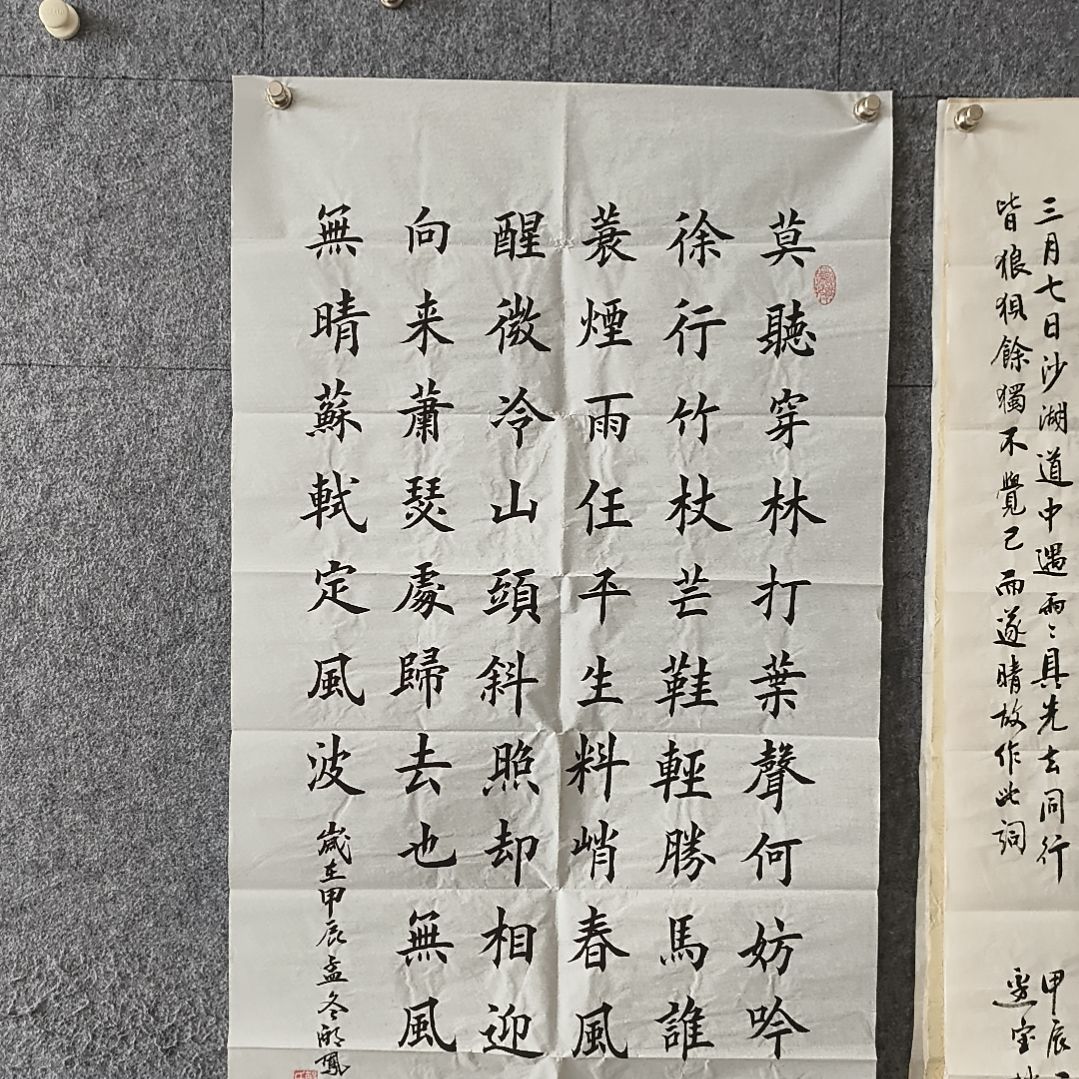 莫聽穿林打葉聲何妨吟
徐行竹杖芒鞋輕勝馬誰
蓑煙雨任平生料峭春風
醒微冷山頭斜照却相迎
向来蕭瑟處歸去也無風
無晴蘇軾定風波
歲在甲辰孟冬
三月七日沙湖道中遇雨〻具先去同行
皆狼狽餘獨不覺已而遂晴故作此詞
甲辰